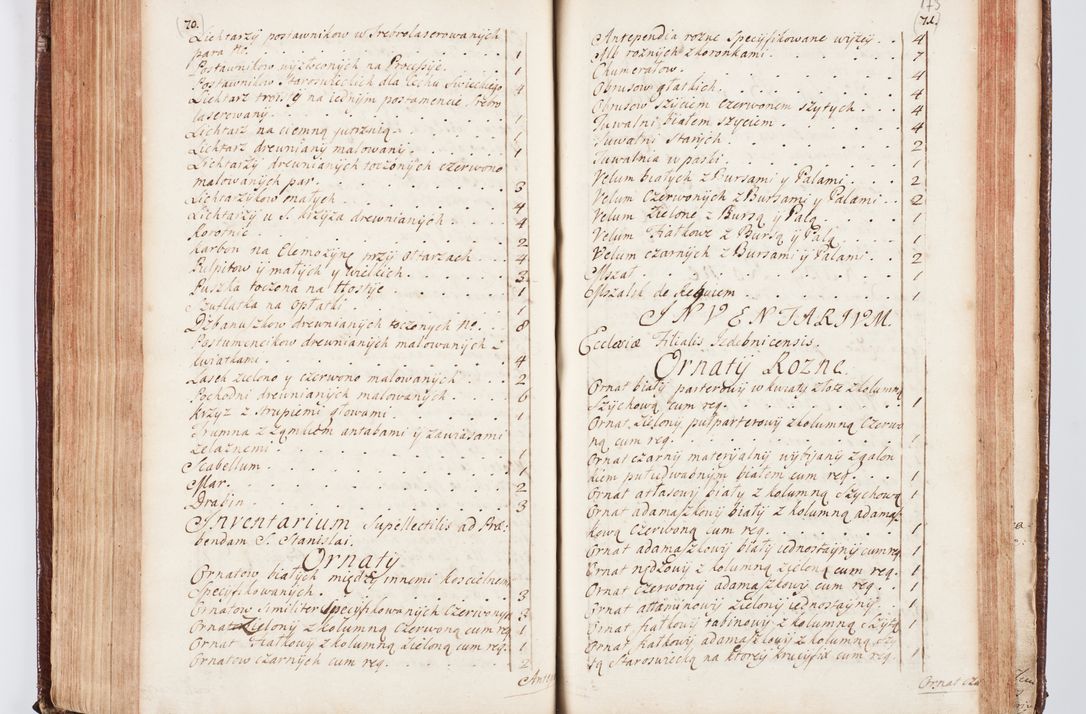 70.
Lichtarzy postawnikow w srebro laserowanych
para No. 1
Postawnikow wyzłoconych na Processye. 1
Postawnikow Staroswieckich dla Cechu 4
Lichtarz troisty na iednym postamencie srebro
laserowany. 1
Lichtarz na ciemną jutrznią 1
Lichtarz drewniany malowany. 1
Lichtarzy drewnianych toczonych czerwono
malowanych par. 3
Lichtarzykow małych. 4
Lichtarzy u S. Krzyża drewnianych. 4
Koronic 2
Karbon na Elemozyne przy Ołtarzach 4
Pulpitow y małych y wielkich. 3
Puszka toczona na Hostye. 1
na opłatki 1
Dzbanuszkow drewnianych toczonych No. 8
Postumencikow drewnianych malowanych z
kwiatkami. 4
Lasek zielono y czerwono malowanych 2
Pochodni drewnianych malowanych. 6
Krzyz z trupiemi głowami. 1
Trumna z zamkiem antabami y zawiasami
żelaznemi. 1
Scabellum. 1
Mar. 2
Drabin. 3
Inventarium Supellectilis ad Præ-
bendam S. Stanislai.
Ornaty
Ornatow białych między innemi koscielnemi
Specyfikowanych. 3
Ornatow similiter Specyfikowanych Czerwonych 3
Ornat Zielony z kolumną Czerwoną cum req. 1
Ornat Fiatkowy z kolumną Zieloną cum req. 1
Ornatow czarnych cum req. 2
173
71.
Antependia rozne specyfikowane wyżey. 4
Alb roznych z koronkami 7
Chumerałow. 4
Obrusow gładkich. 4
Obrusow szyciem czerwonem szytych. 4
Tuwalni białem szyciem 4
Tuwalni starych. 2
Tuwalnia w pasbi 1
Velum białych z Bursami y Palami. 2
Velum Czerwonych z Bursami y Palami. 2
Velum Zielone z Bursą y Palą. 1
Velum Fiatkowe z Bursą y Palą 1
Velum czarnych z Bursami y Palami. 2
Mszał 1
Mszalik de Requiem 1
INVENTARIVM.
Ecclesiæ Filialis Jedebnicensis.
Ornaty Rozne.
Ornat biały parterowy w kwiaty złote z kolumną
Szychową cum req. 1
Ornat zielony pułparterowy z kolumną Czerwo
ną cum req. 1
Ornat czarny materyalny wybijany z galon
kiem białem cum req. 1
Ornat atłasowy biały z kolumną Szychową 1
Ornat adamaszkowy biały z kolumną adamasz-
kową czerwoną cum req. 1
Ornat adamaszkowy biały iednostayny cum req. 1
Ornat rydzowy z kolumną zieloną cum req. 1
Ornat czerwony adamaszkowy cum req. 1
Ornat ałtaminowy zielony iednostayny. 1
Ornat fiatkowy tabinowy z kolumną szytą 1
Ornat fiatkowy adamaszkowy z kolumną szy-
tą Staroswiecką na ktorey krucyfix cum req. 1
Ornat cza